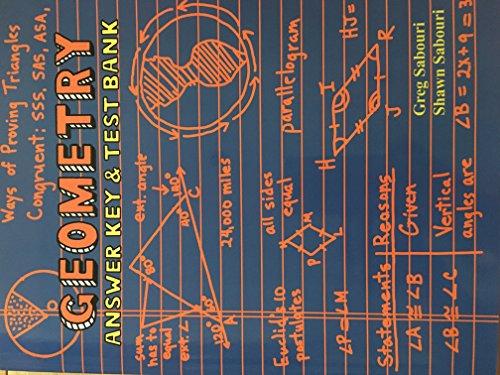 Ways of Proving Triangles
Congruent: SSS, SAS, ASA,
GEOMETRY
ANSWER KEY & TEST BANK
sum
has to
equal
ext. ∠
ext. angle
80°
40°
140°
120°
A
C
24,000 miles
Euclid's 10
postulates
all sides
equal
P
M
L
∠P≅∠M
parallelogram
HJ=
H
I
R
J
Statements
Reasons
∠A ≅ ∠B
Given
∠B ≅ ∠C
Vertical
angles are
∠B = 2x+9 = 3
Greg Sabouri
Shawn Sabouri